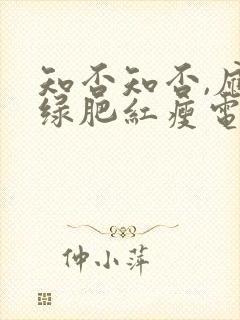 知否知否,应
绿肥红瘦電
仲小萍